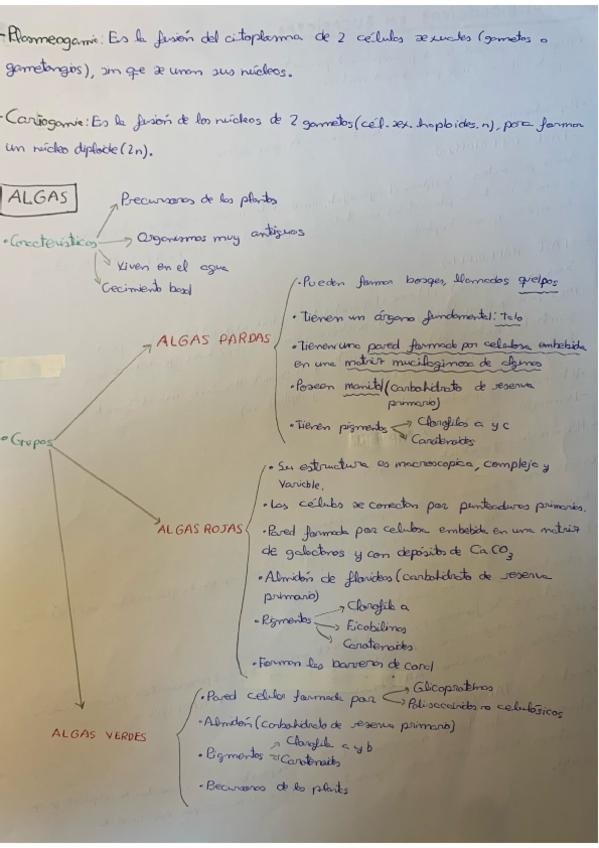 -Plasmogamia: Es la fusión del citoplasma de 2 células sexuales (gametos o
gametangios), sin que se unan sus núcleos.
-Cariogamia: Es la fusión de los núcleos de 2 gametos (cél. sex. haploides, n), para formar
un núcleo diploide (2n).
ALGAS
• Características
Precursoras de las plantas
Organismos muy antiguos
Viven en el agua
Crecimiento basal
• Grupos
ALGAS PARDAS
• Pueden formar bosques, llamados quelpos
• Tienen un órgano fundamental: talo
• Tienen una pared formada por celulosa embebida
en una matriz mucilaginosa de
• Poseen manitol (carbohidrato de reserva
primario)
• Tienen pigmentos
Clorofilas a y c
Carotenoides
ALGAS ROJAS
• Su estructura es macroscopica, compleja y
variable.
• Las células se conectan por punteaduras primarias.
• Pared formada por celulosa embebida en una matriz
de galactanos y con depósitos de CaCO3
• Almidón de florideas (carbohidrato de reserva
primario)
• Pigmentos
Clorofila a
Ficobilinas
Carotenoides
• Forman las barreras de coral
ALGAS VERDES
• Pared celular formada por
Glicoproteinas
Polisacáridos no celulósicos
• Almidón (carbohidrato de reserva primario)
• Pigmentos
Clorofila a y b
Carotenoides
• Precursoras de las plantas